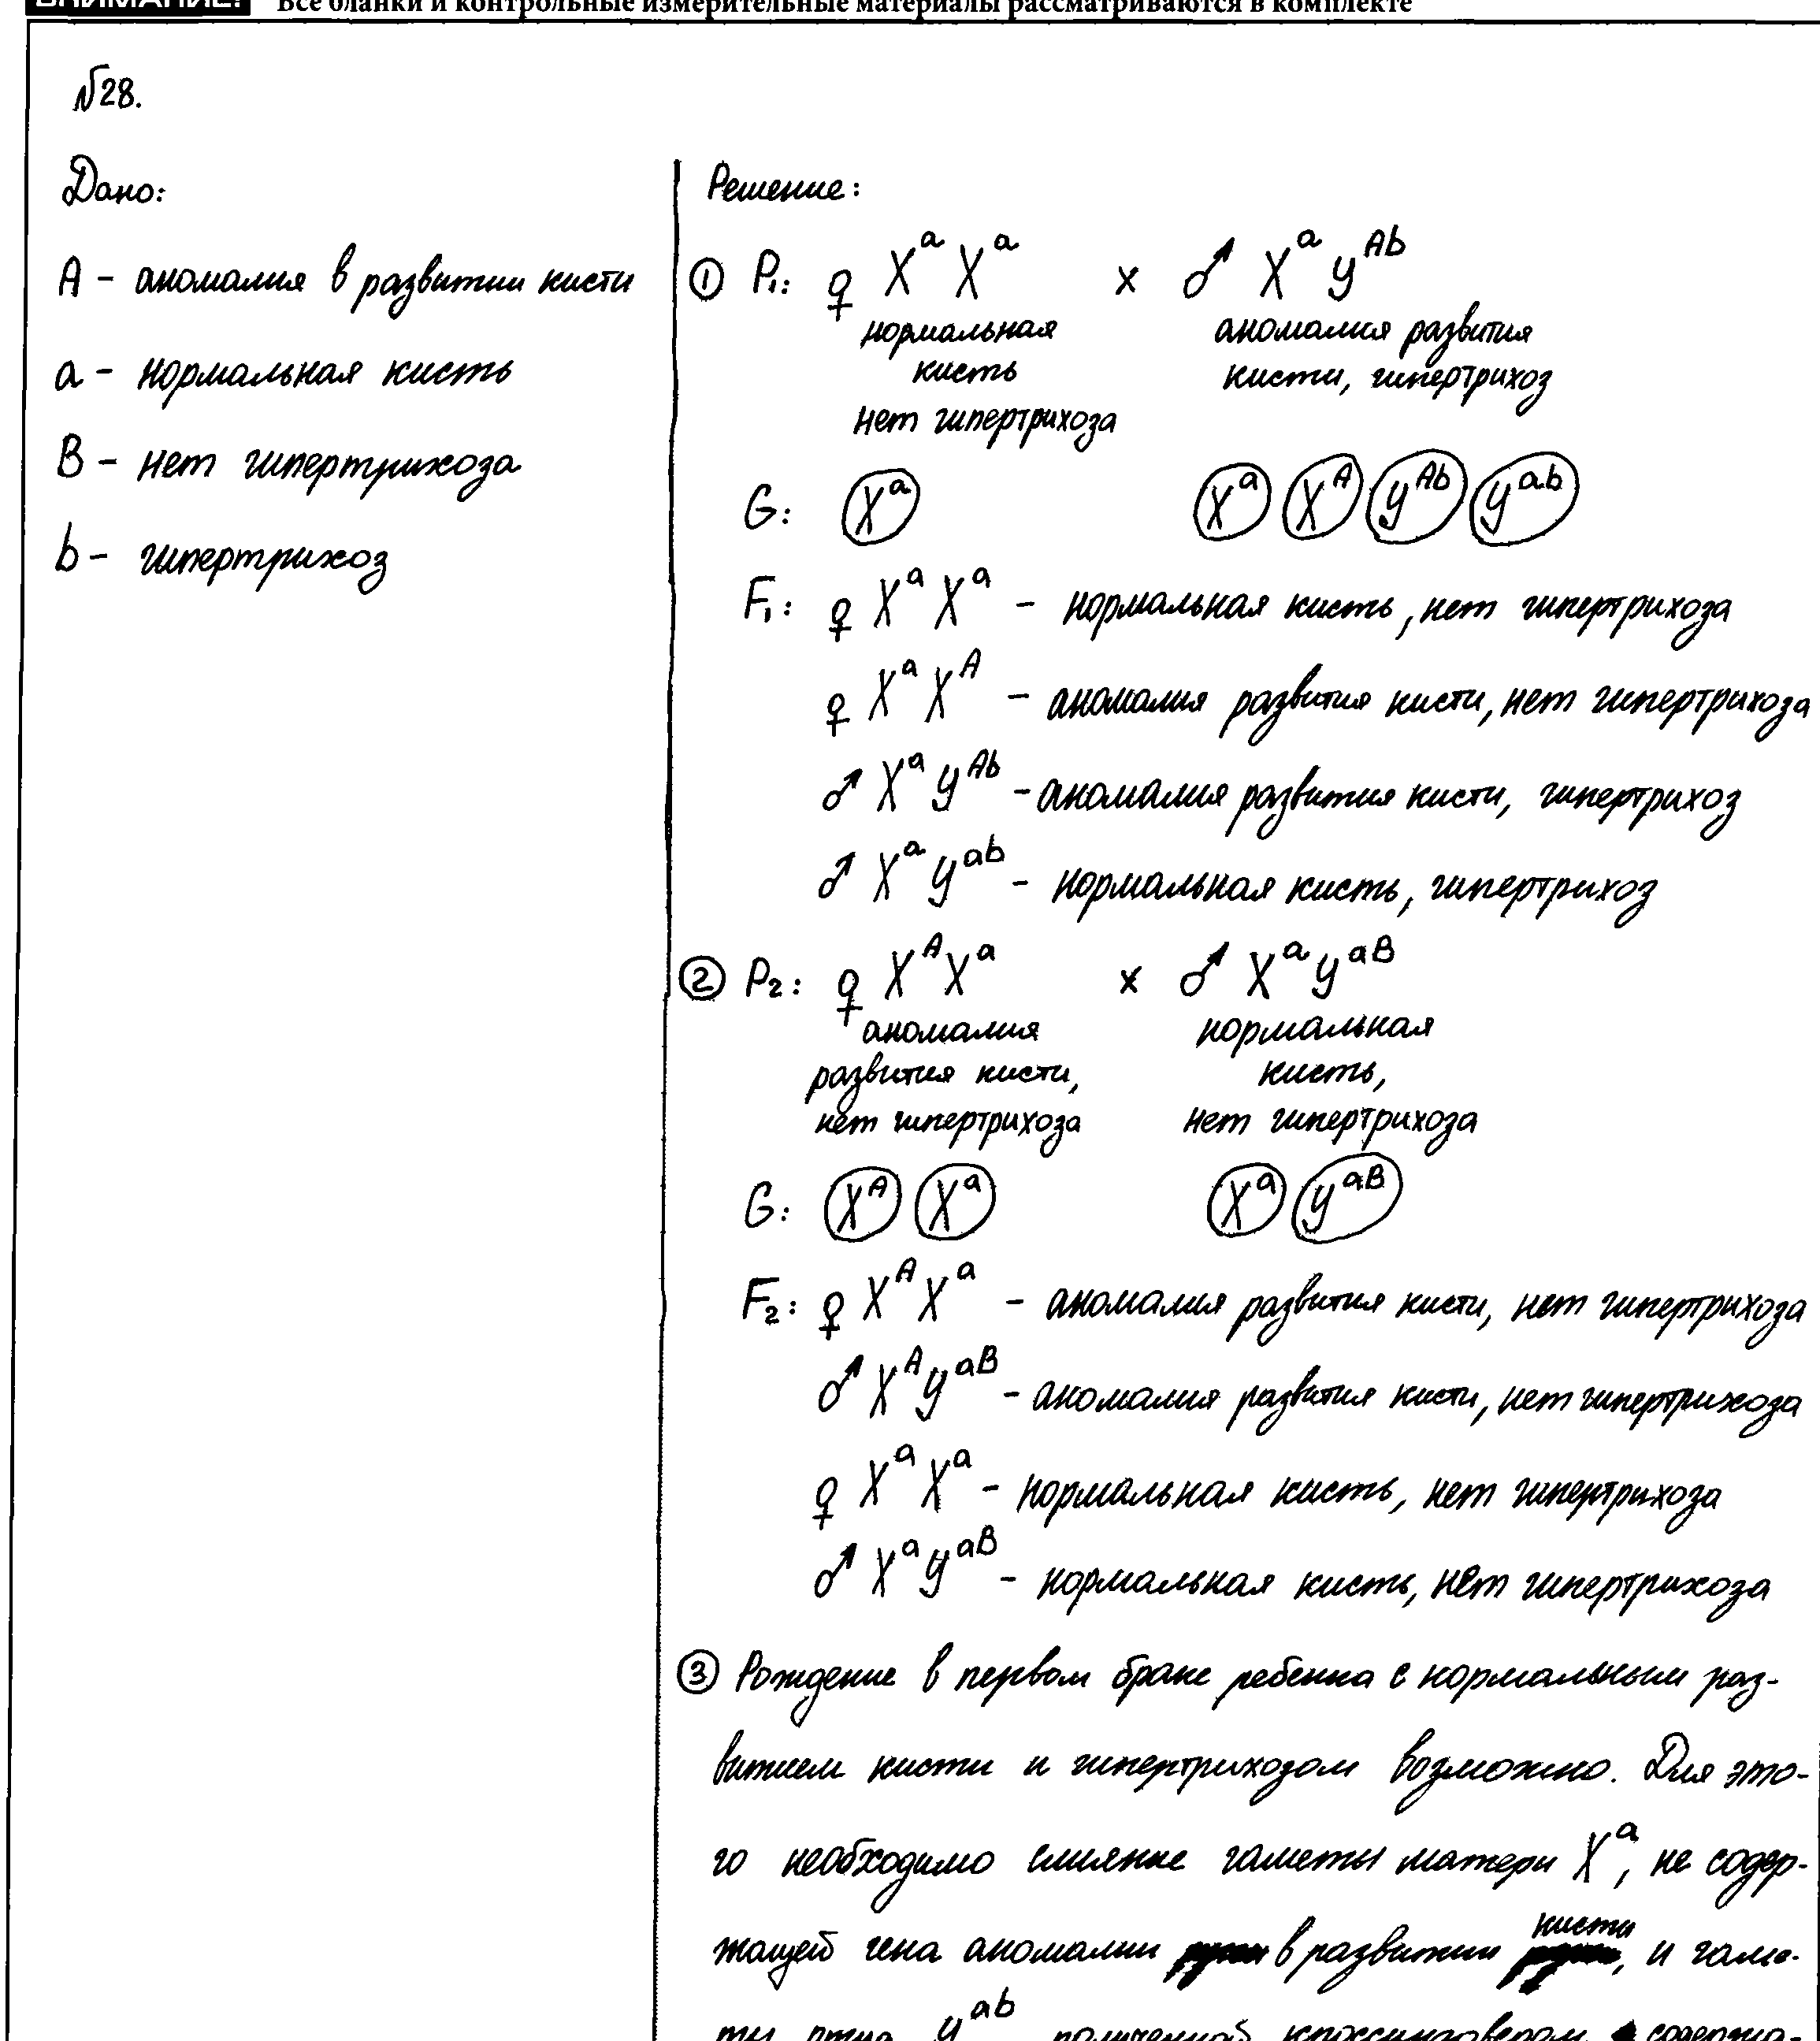 ВНИМАНИЕ! Все бланки и контрольные измерительные материалы рассматриваются в комплекте
№28.
Дано:
A - аномалия в развитии кисти
a - нормальная кисть
B - нет гипертрихоза
b - гипертрихоз
Решение:
① P₁: ♀ XᵃXᵃ x ♂ XᵃYᴬᵇ
нормальная кисть нет гипертрихоза
аномалия развития кисти, гипертрихоз
G: Xᵃ Xᵃ Xᴬ Yᴬᵇ Yᵃᵇ
F₁: ♀ XᵃXᵃ - нормальная кисть, нет гипертрихоза
♀ XᵃXᴬ - аномалия развития кисти, нет гипертрихоза
♂ XᵃYᴬᵇ - аномалия развития кисти, гипертрихоз
♂ XᵃYᵃᵇ - нормальная кисть, гипертрихоз
② P₂: ♀ XᴬXᵃ x ♂ XᵃYᵃᴮ
аномалия развития кисти, нет гипертрихоза
нормальная кисть, нет гипертрихоза
G: Xᴬ Xᵃ Xᵃ Yᵃᴮ
F₂: ♀ XᴬXᵃ - аномалия развития кисти, нет гипертрихоза
♂ XᴬYᵃᴮ - аномалия развития кисти, нет гипертрихоза
♀ XᵃXᵃ - нормальная кисть, нет гипертрихоза
♂ XᵃYᵃᴮ - нормальная кисть, нет гипертрихоза
③ Рождение в первом браке ребенка с нормальным раз-
витием кисти и гипертрихозом возможно. Для это-
го необходимо слияние гаметы матери Xᵃ, не содер-
жащей гена аномалии в развитии кисти, и гаме-
ты отца Yᵃᵇ полученной кроссинговером содержа-